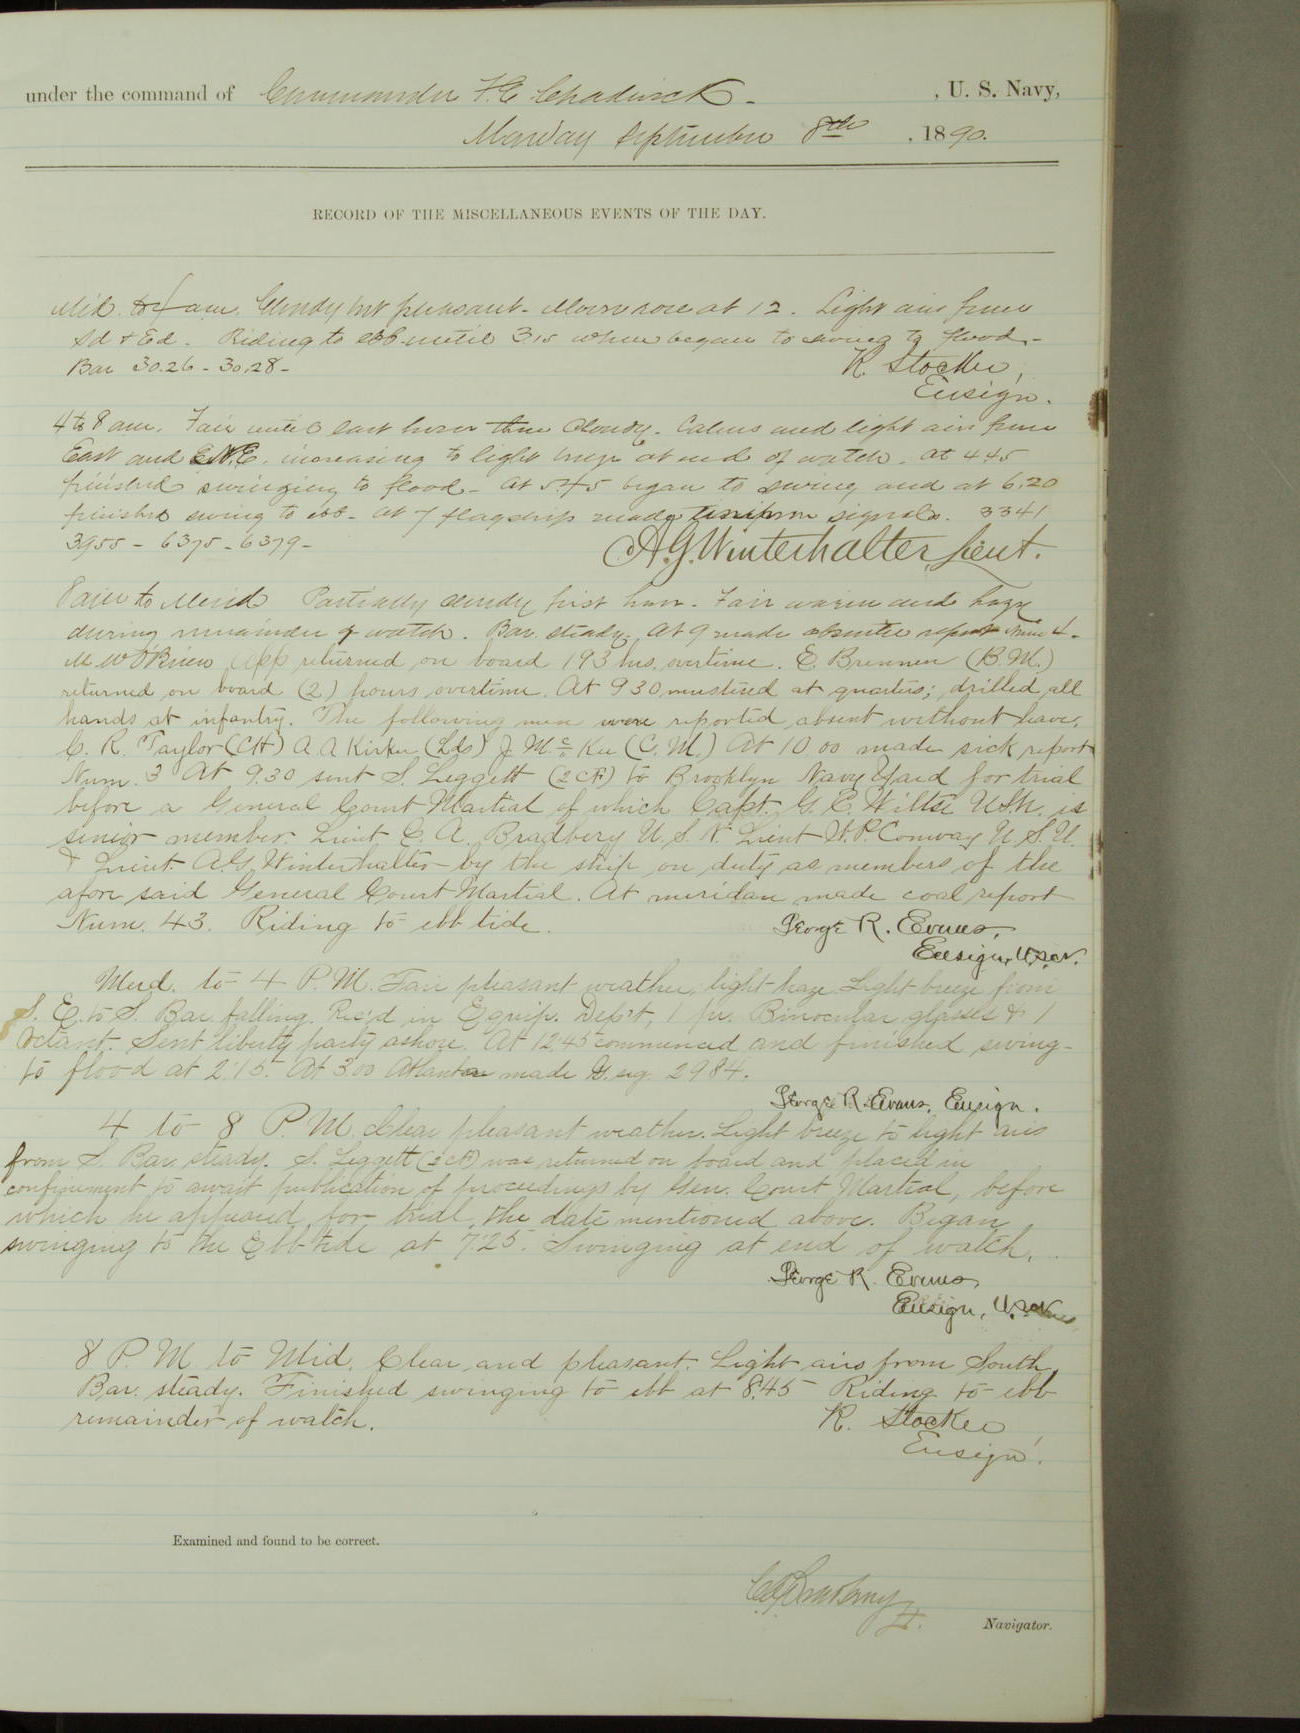 under the command of Commander F. E. Chadwick - , U. S. Navy,
Monday September 8th , 1890.
RECORD OF THE MISCELLANEOUS EVENTS OF THE DAY.
Mid. to 4 am. Cloudy but pleasant - Moon rose at 12. Light airs from
Sd & Ed. Riding to ebb until 3 15 when began to swing to flood -
Bar 30.26 - 30.28 -
R. Stocker,
Ensign.
4 to 8 am. Fair until last hour then cloudy. Calms and light airs from
East and E.N.E. increasing to light breeze at end of watch. At 4 45
finished swinging to flood - At 5.45 began to swing and at 6.20
finished swing to ebb - at 7 flagship made uniform signals. 3341
3955 - 6375 - 6379 -
A. G. Winterhalter, Lieut.
8 am to Merid Partially cloudy first hour. Fair warm and hazy
during remainder of watch. Bar. steady. At 9 made absentee report Num 4.
M. W O'Brien App returned on board 193 hrs. overtime. E. Brennen (B.M.)
returned on board (2) hours overtime. At 9 30 mustered at quarters; drilled all
hands at infantry. The following men were reported absent without leave,
C. R. Taylor (CH) A. A Kirker (Lds) J Mc Kee (C. M.) At 10 00 made sick report
Num. 3 At 9.30 sent S. Leggett (2 CF) to Brooklyn Navy Yard for trial
before a General Court Martial of which Capt. G. C. Wiltse U.S.N. is
senior member. Lieut C. A. Bradbery U. S. N. Lieut W. P. Conway U S. N.
& Lieut. A. G. Winterhalter by the ship on duty as members of the
afore said General Court Martial. At meridan made coal report
Num. 43. Riding to ebb tide.
George R. Evans,
Ensign, U.S.N.
Merd. to 4 P. M. Fair pleasant weather, light haze Light breeze from
S. E. to S. Bar. falling. Rec'd in Equip. Dep't, 1 pr. Binocular glasses & 1
Octant. Sent liberty party ashore. At 12.45 commenced and finished swing-
to flood at 2.15. At 3.00 Atlanta made G. sig. 2984.
George R. Evans, Ensign.
4 to 8 P. M. Clear pleasant weather. Light breeze to light airs
from S. Bar. steady. S. Leggett (2 CF) was returned on board and placed in
confinement to await publication of proceedings by Gen. Court Martial, before
which he appeared for trial, the date mentioned above. Began
swinging to the Ebb tide at 7.25. Swinging at end of watch.
George R. Evans
Ensign, U.S.N.
8 P. M. to Mid. Clear and pleasant. Light airs from South,
Bar. steady. Finished swinging to ebb at 8.45 Riding to ebb
remainder of watch.
R. Stocker,
Ensign.
Examined and found to be correct.
Navigator.